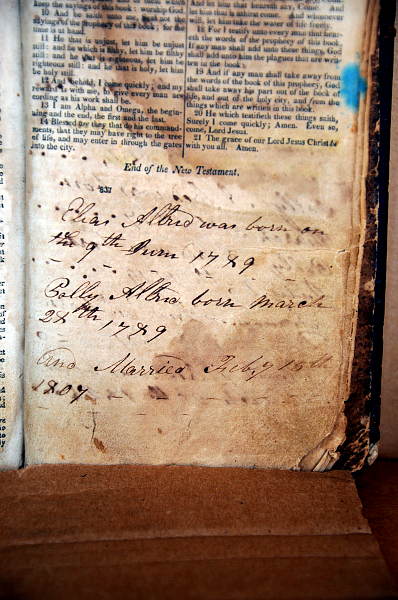 sayings of the prophecy of this book: for the
time is at hand.
11 He that is unjust, let him be unjust
still: and he which is filthy, let him be filthy
still: and he that is righteous, let him be
righteous still: and he that is holy, let him
be holy still.
12 And behold, I come quickly; and my
reward is with me, to give every man ac-
cording as his work shall be.
13 I am Alpha and Omega, the begin-
ning and the end, the first and the last.
14 Blessed are they that do his command-
ments, that they may have right to the tree
of life, and may enter in through the gates
into the city.
let him that heareth say, Come. And
let him that is athirst come. And whosoever
will, let him take the water of life freely.
18 For I testify unto every man that hear-
eth the words of the prophecy of this book,
If any man shall add unto these things, God
shall add unto him the plagues that are writ-
ten in this book:
19 And if any man shall take away from
the words of the book of this prophecy, God
shall take away his part out of the book of
life, and out of the holy city, and from the
things which are written in this book.
20 He which testifieth these things saith,
Surely I come quickly; Amen. Even so,
come, Lord Jesus.
21 The grace of our Lord Jesus Christ be
with you all. Amen.
End of the New Testament.
837
Elias Allred was born on
the 9th Juni 1789
Polly Allred born march
28th 1789
And Married Feby 15th
1807